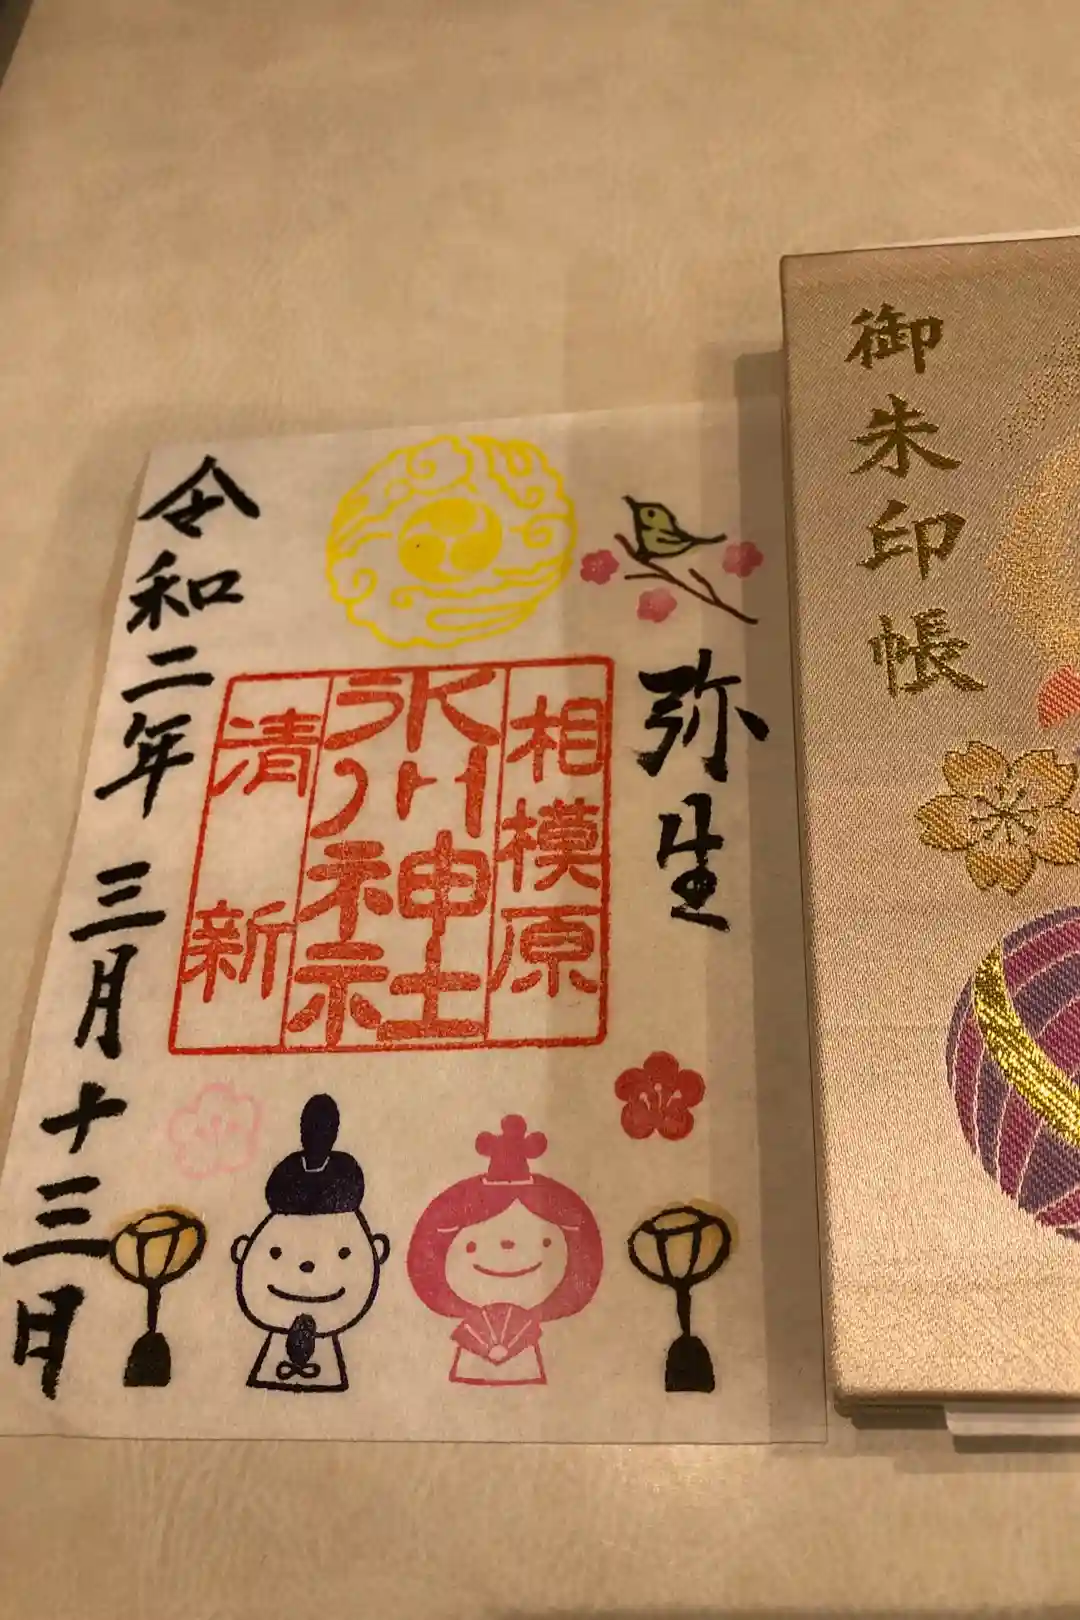 御朱印帳
弥生
相模原
氷川神社
清新
令和二年三月十三日